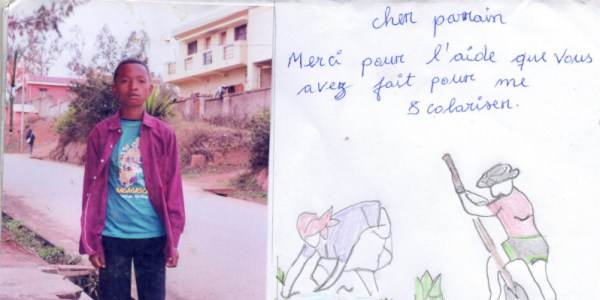 cher parrain
Merci pour l'aide que vous
avez fait pour me
Scolariser.